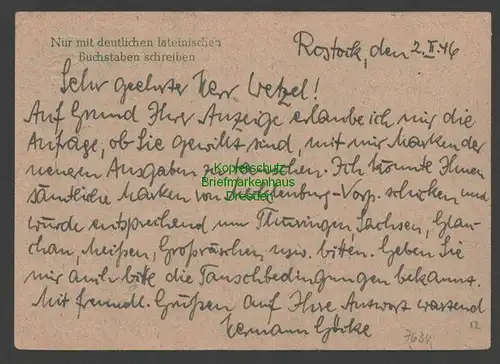 Nur mit deutlichen lateinischen
Buchstaben schreiben
Rostock, den 2. II. 46
Sehr geehrter Herr Wetzel!
Auf Grund Ihrer Anzeige erlaube ich mir die
Anfrage, ob Sie gewillt sind, mit mir Marken der
neuen Ausgaben zu tauschen. Ich könnte Ihnen
Kopierschutz
Briefmarkenhaus
Dresden
sämtliche Marken von Mecklenburg-Vorp. schicken und
würde entsprechend um Thüringen, Sachsen, Glau-
chau, Meißen, Großräschen usw. bitten. Geben Sie
mir auch bitte die Tauschbedingungen bekannt.
Mit freundl. Grüßen auf Ihre Antwort wartend
Hermann Göcke
12
7634